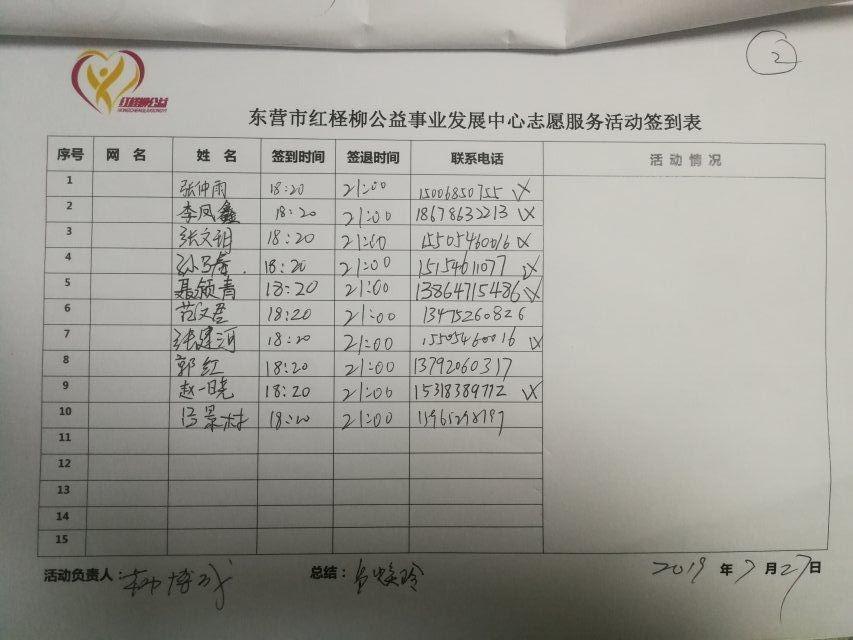 2
红柽柳公益
HONGCHENGLIUGONGYI
东营市红柽柳公益事业发展中心志愿服务活动签到表
序号 网 名 姓 名 签到时间 签退时间 联系电话 活 动 情 况
1 张仲雨 18:20 21:00 15006850755
2 李凤鑫 18:20 21:00 18678632213
3 18:20 21:00 15505460016
4 18:20 21:00 15154611077
5 聂领青 18:20 21:00 13864715486
6 范汉君 18:20 21:00 13475260826
7 张建河 18:20 21:00 15505460016
8 郭红 18:20 21:00 13792060317
9 赵一晓 18:20 21:00 15318389712
10 18:20 21:00
11
12
13
14
15
活动负责人: 总结: 2019 年 7 月 27 日